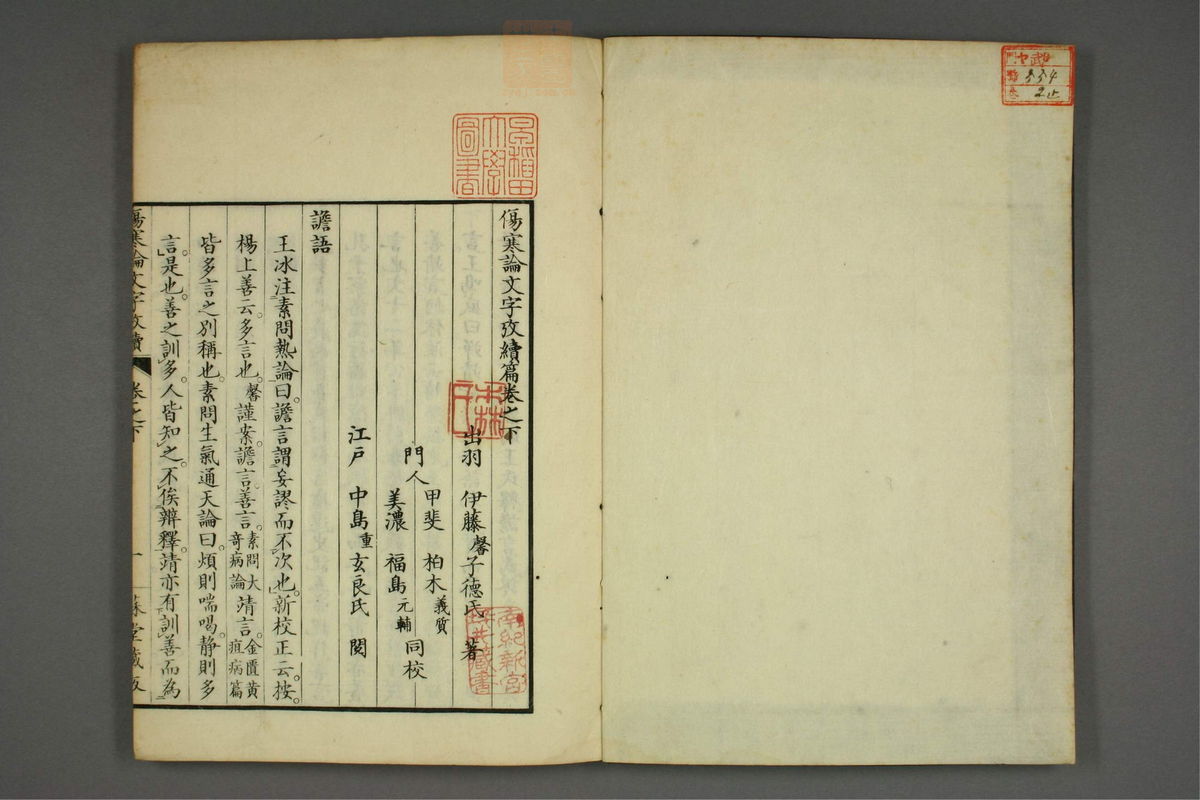 傷寒論文字攷續篇卷之下
出羽 伊藤馨子德氏 著
門人 甲斐 柏木義質
美濃 福島元輔 同校
江戸 中島重玄良氏 閱
譫語
王冰注素問熱論曰。譫言謂妄謬而不次也。新校正云。按。
楊上善云。多言也。馨謹案。譫言。善言。素問大奇病論靖言。金匱黃疸病篇
皆多言之別稱也。素問生氣通天論曰。煩則喘喝。静則多
言。是也。善之訓多。人皆知之。不俟辨釋。靖亦有訓善而為
傷寒論文字攷續 卷之下 一 藏版
早稻田大學圖書
林氏
門 ヤ
號 834
卷 2止